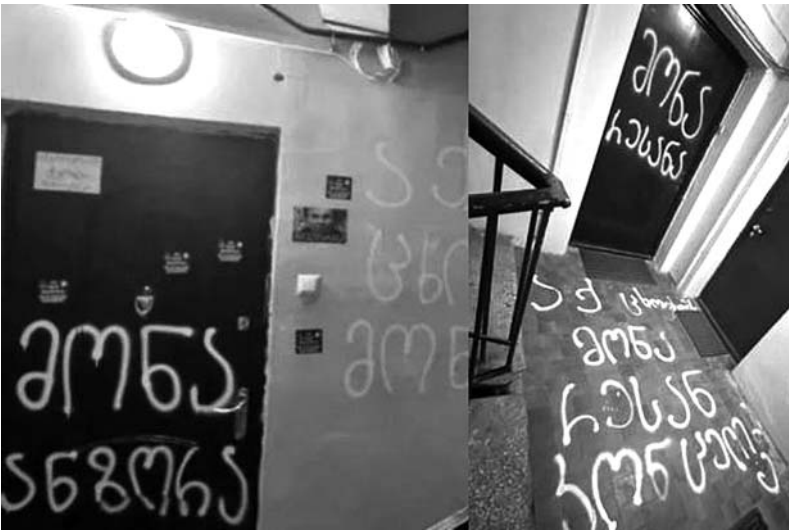 მონა
ანზორა
ა ქ
ცხ
მონ
მონა
რესანა
ა ქ ცხოვრობს
მონა
რესან
კონცელიძე